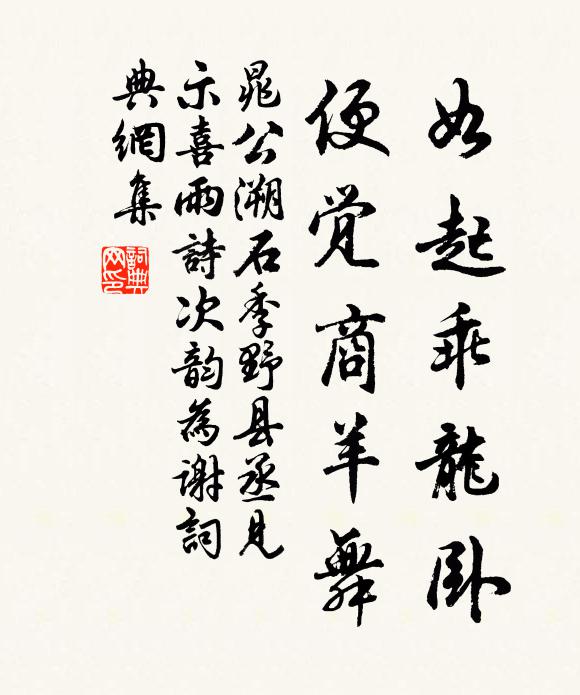 如起乖龍卧
便覚商羊舞
晁公溯石季野县丞見
示喜雨詩次韵為謝詞
典網集
詞典
网印